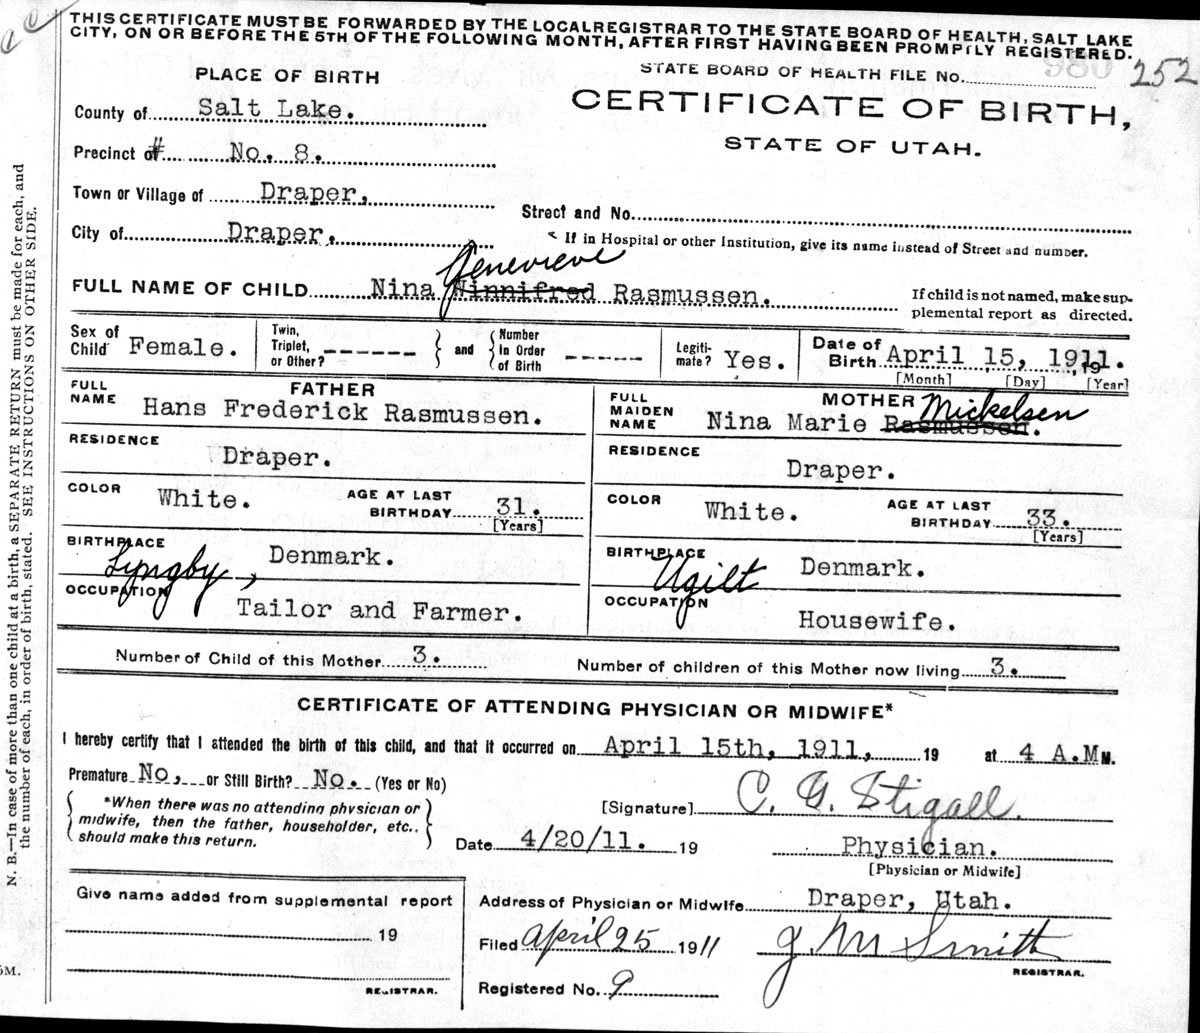 THIS CERTIFICATE MUST BE FORWARDED BY THE LOCAL REGISTRAR TO THE STATE BOARD OF HEALTH, SALT LAKE
CITY, ON OR BEFORE THE 5TH OF THE FOLLOWING MONTH, AFTER FIRST HAVING BEEN PROMPTLY REGISTERED.
PLACE OF BIRTH
STATE BOARD OF HEALTH FILE No. 252
County of Salt Lake.
CERTIFICATE OF BIRTH,
STATE OF UTAH.
Precinct of # No. 8.
Town or Village of Draper,
Street and No.
City of Draper.
If in Hospital or other Institution, give its name instead of Street and number.
Genevieve
FULL NAME OF CHILD Nina Winnifred Rasmussen.
If child is not named, make sup-
plemental report as directed.
Sex of Child Female.
Twin, Triplet, or Other? ------
and
Number in Order of Birth ------
Legiti-mate? Yes.
Date of Birth April 15, 1911. 19
[Month] [Day] [Year]
FATHER
FULL NAME Hans Frederick Rasmussen.
RESIDENCE
Draper.
COLOR White.
AGE AT LAST BIRTHDAY 31.
[Years]
BIRTHPLACE
Lyngby, Denmark.
OCCUPATION
Tailor and Farmer.
MOTHER
Mickelsen
FULL MAIDEN NAME Nina Marie Rasmussen.
RESIDENCE
Draper.
COLOR White.
AGE AT LAST BIRTHDAY 33.
[Years]
BIRTHPLACE
Ugilt Denmark.
OCCUPATION
Housewife.
Number of Child of this Mother 3.
Number of children of this Mother now living 3.
CERTIFICATE OF ATTENDING PHYSICIAN OR MIDWIFE*
I hereby certify that I attended the birth of this child, and that it occurred on April 15th, 1911, 19 at 4 A.M M.
Premature No, or Still Birth? No. (Yes or No)
*When there was no attending physician or
midwife, then the father, householder, etc..
should make this return.
[Signature] C. G. Stigall.
Date 4/20/11. 19
Physician.
[Physician or Midwife]
Give name added from supplemental report
19
REGISTRAR.
Address of Physician or Midwife Draper, Utah.
Filed April 25 1911
J. M Smith
REGISTRAR.
Registered No. 9
N. B.—In case of more than one child at a birth, a SEPARATE RETURN must be made for each, and
the number of each, in order of birth, stated. SEE INSTRUCTIONS ON OTHER SIDE.